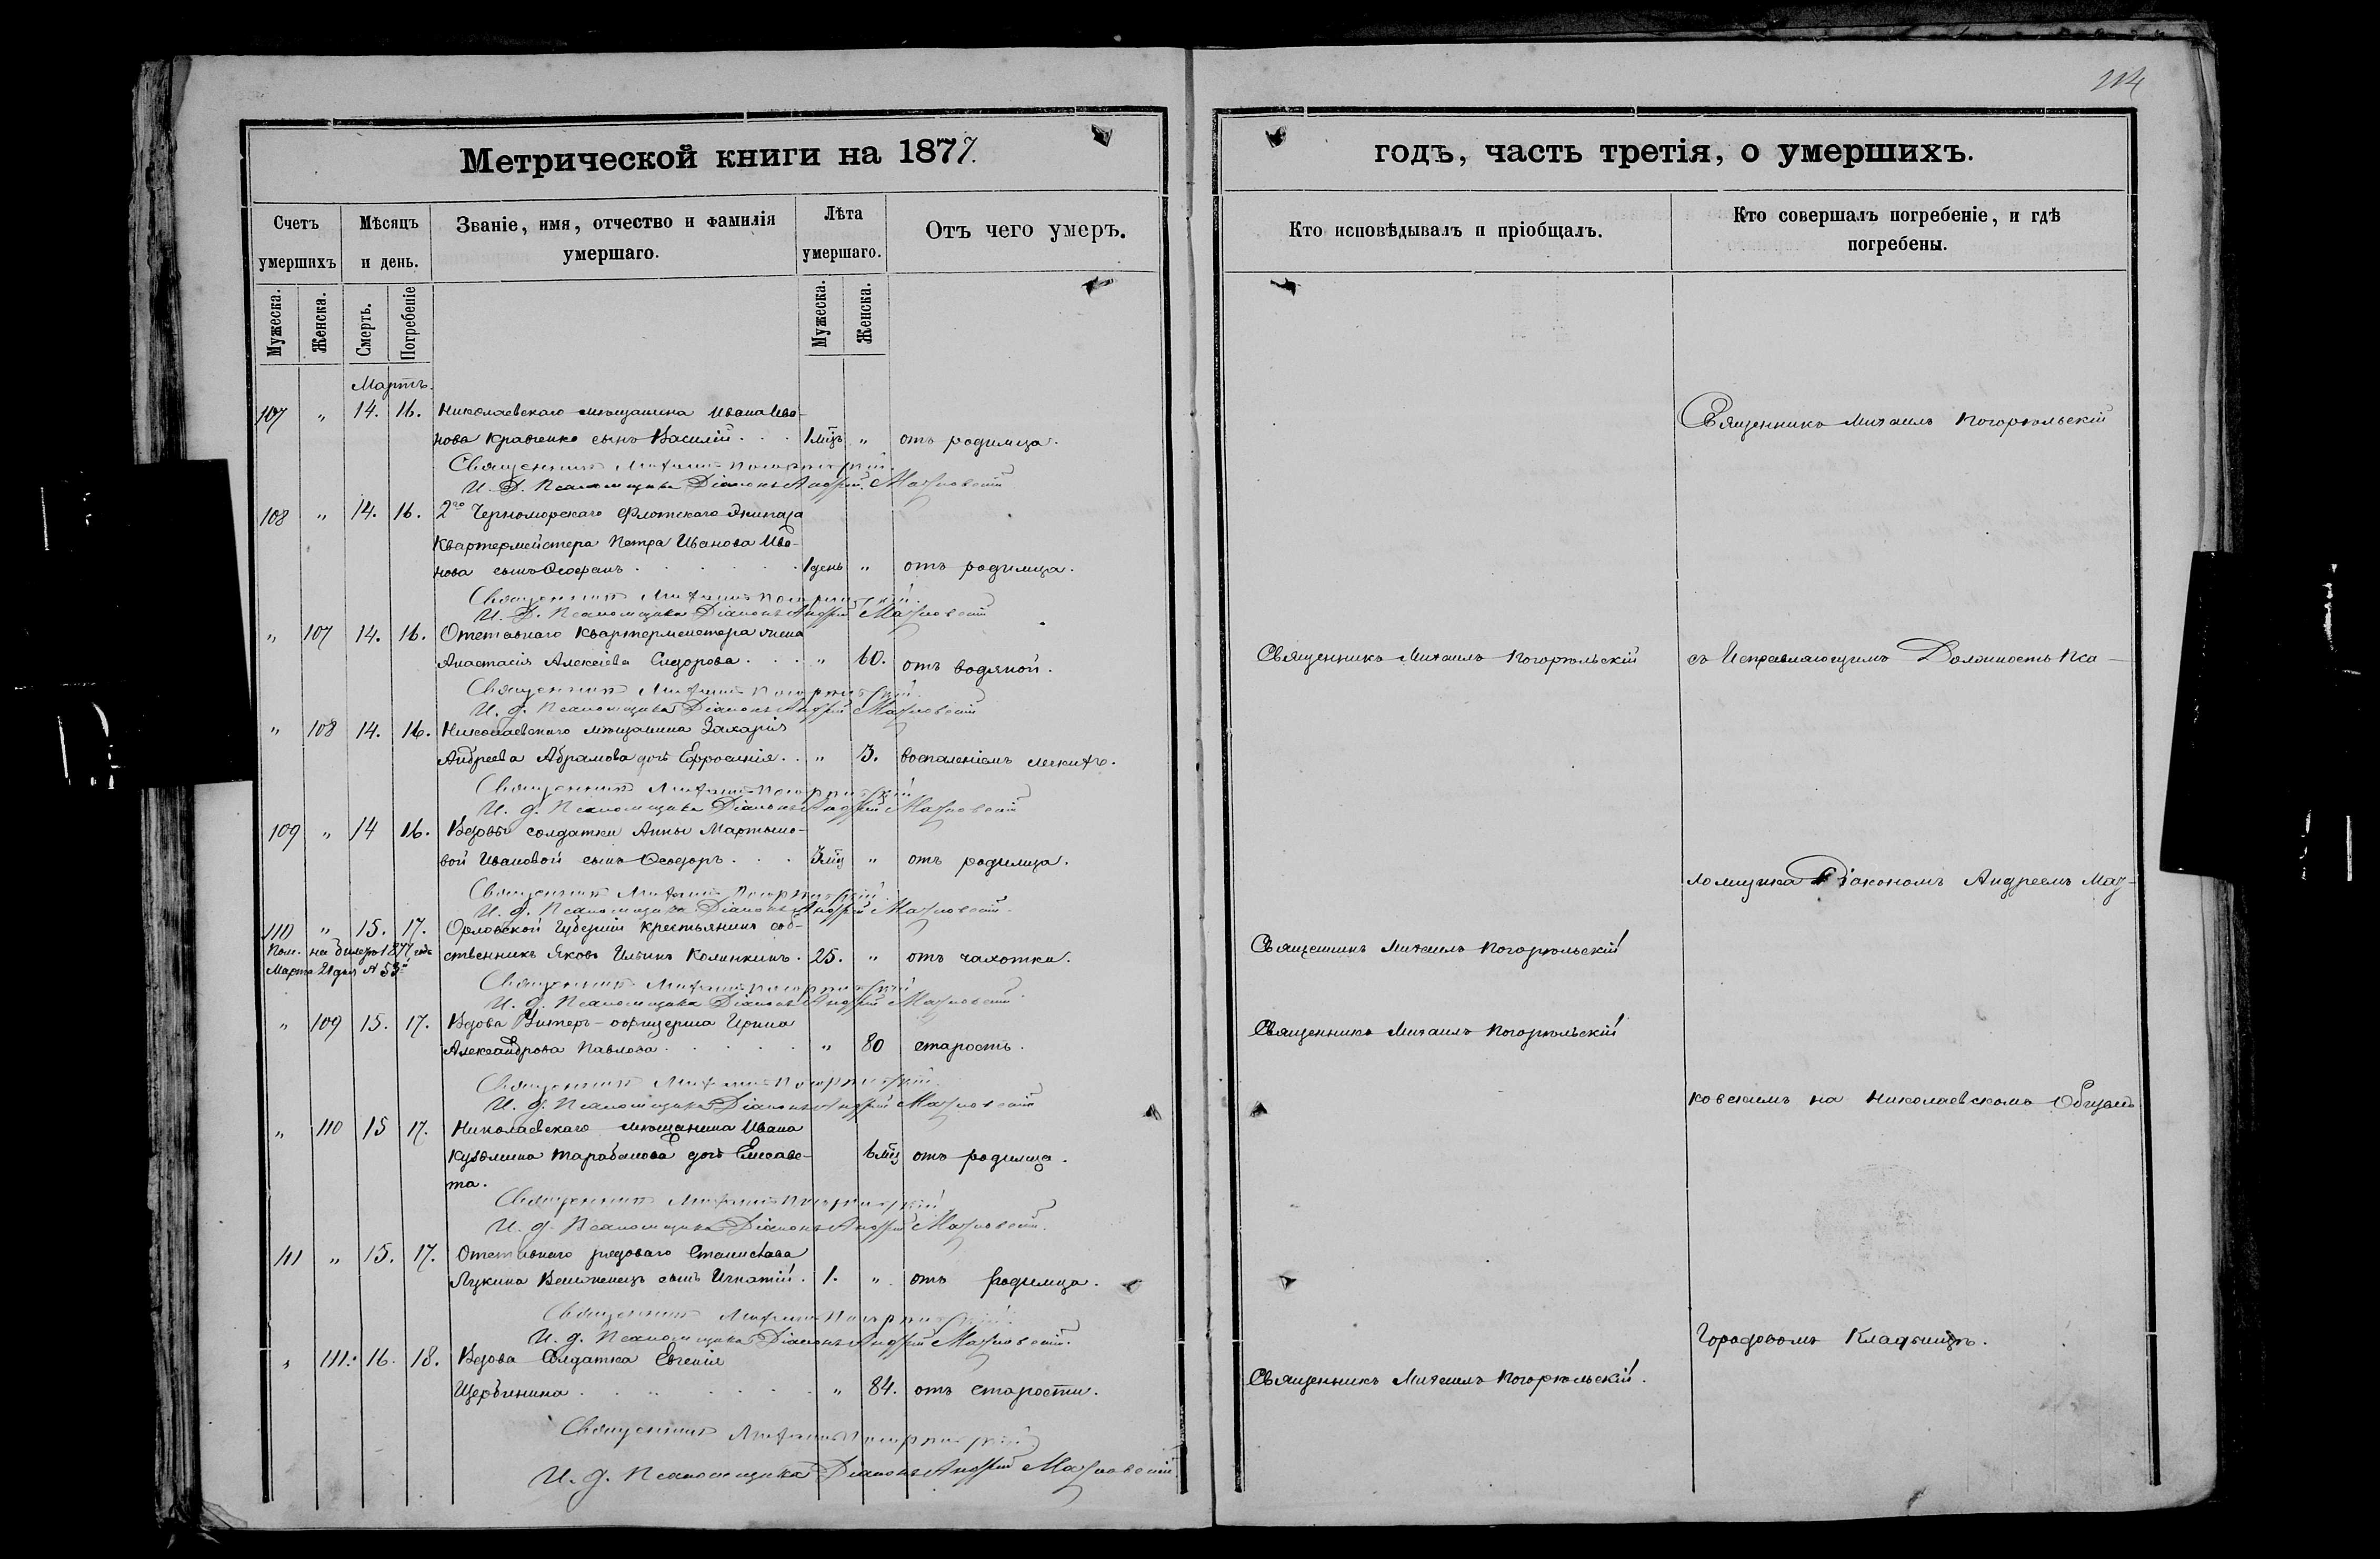 214
Метрической книги на 1877.
годъ, часть третія, о умершихъ.
Счетъ умершихъ
Мѣсяцъ и день.
Званіе, имя, отчество и фамилія умершаго.
Лѣта умершаго.
Отъ чего умеръ.
Кто исповѣдывалъ и пріобщалъ.
Кто совершалъ погребеніе, и гдѣ погребены.
Мужеска.
Женска.
Смерть.
Погребеніе
Мужеска.
Женска.
Мартъ.
107 " 14. 16. Николаевскаго мѣщанина Ивана Ива-
нова Кравченко сынъ Василій . . . 1 мцъ " отъ родимца.
Священникъ Михаилъ Погорѣльскій
И. Д. Псаломщика Діаконъ Андрей
108 " 14. 16. 2го Черноморскаго Флотскаго Экипажа
Квартермейстера Петра Иванова Ива-
нова сынъ Ѳеофанъ . . . 1 день " отъ родимца.
Священникъ Михаилъ Погорѣльскій
И. Д. Псаломщика Діаконъ Андрей
" 107 14. 16. Отставнаго Квартермейстера жена
Анастасія Алексіева Сидорова . . . " 60. отъ водяной.
Священникъ Михаилъ Погорѣльскій
съ Исправляющимъ Должность Пса-
Священникъ Михаилъ Погорѣльскій
И. д. Псаломщика Діаконъ Андрей
" 108 14. 16. Николаевскаго мѣщанина Захарія
Андреева Абрамова дочь Ефросинія . . " 3. воспаленіемъ легкихъ.
Священникъ Михаилъ Погорѣльскій
И. д. Псаломщика Діаконъ Андрей
109 " 14 16. Вдовы солдатки Анны Мартыно-
вой Ивановой сынъ Ѳеодоръ . . . 3 мц " отъ родимца.
ломщика Діакономъ Андреемъ Маз-
Священникъ Михаилъ Погорѣльскій
И. д. Псаломщика Діаконъ Андрей
110 " 15. 17. Орловской Губерніи крестьянинъ соб-
Пом. на билетѣ 1877 года
ственникъ Яковъ Ильинъ Калинкинъ . 25. " отъ чахотки.
Священникъ Михаилъ Погорѣльскій
Марта 21 дня № 53й
Священникъ Михаилъ Погорѣльскій
И. д. Псаломщика Діаконъ Андрей
" 109 15. 17. Вдова Унтеръ-офицерша Ирина
Александрова Павлова . . . " 80 старость.
Священникъ Михаилъ Погорѣльскій
Священникъ Михаилъ Погорѣльскій
И. д. Псаломщика Діаконъ Андрей
ковскимъ на Николаевскомъ Общемъ
" 110 15 17. Николаевскаго мѣщанина Ивана
Кузьмина Тарабанова дочь Елисаве- 6 мц отъ родимца.
та.
Священникъ Михаилъ Погорѣльскій
И. д. Псаломщика Діаконъ Андрей
111 " 15. 17. Отставнаго рядоваго Станислава
Лукина сынъ Игнатій . 1. " отъ родимца.
Священникъ Михаилъ Погорѣльскій
И. д. Псаломщика Діаконъ Андрей
Городовомъ Кладбищѣ.
" 111. 16. 18. Вдова Солдатка Евгенія
Щербинина . . . " 84. отъ старости.
Священникъ Михаилъ Погорѣльскій.
Священникъ Михаилъ Погорѣльскій
И. д. Псаломщика Діаконъ Андрей
Священникъ Михаилъ Погорѣльскій